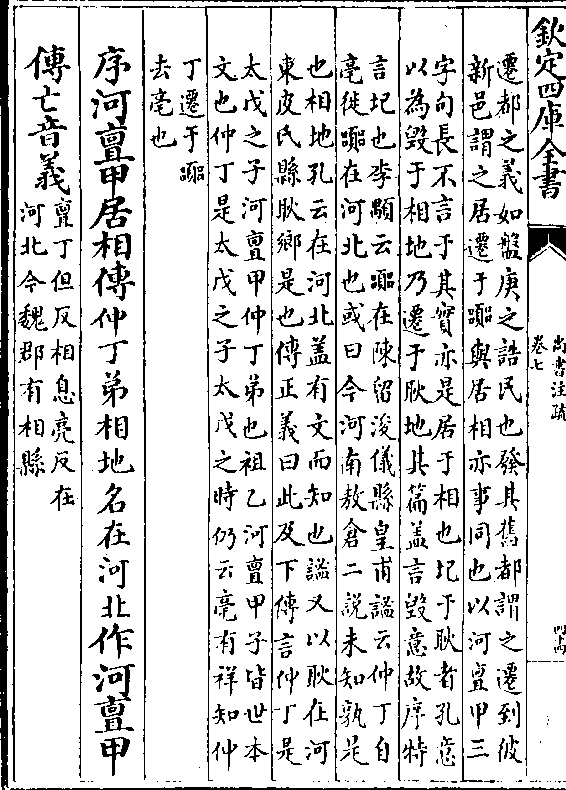 欽定四庫全書
尚書注疏
卷七
遷都之義如盤庚之誥民也發其舊都謂之遷到彼
新邑謂之居遷于嚻與居相亦事同也以河亶甲三
字句長不言于其實亦是居于相也圮于耿者孔意
以為毁于相地乃遷于耿地其篇盖言毁意故序特
言圮也李顒云嚻在陳留浚儀縣皇甫謐云仲丁自
亳徙嚻在河北也或曰今河南敖倉二説未知孰是
也相地孔云在河北盖有文而知也謐又以耿在河
東皮氏縣耿鄉是也傳正義曰此及下傳言仲丁是
太戊之子河亶甲仲丁弟也祖乙河亶甲子皆世本
文也仲丁是太戊之子太戊之時仍云亳有祥知仲
丁遷于嚻
去亳也
序河亶甲居相傳仲丁弟相地名在河北作河亶甲
傳亡音義亶丁但反相息亮反在
河北今魏郡有相縣